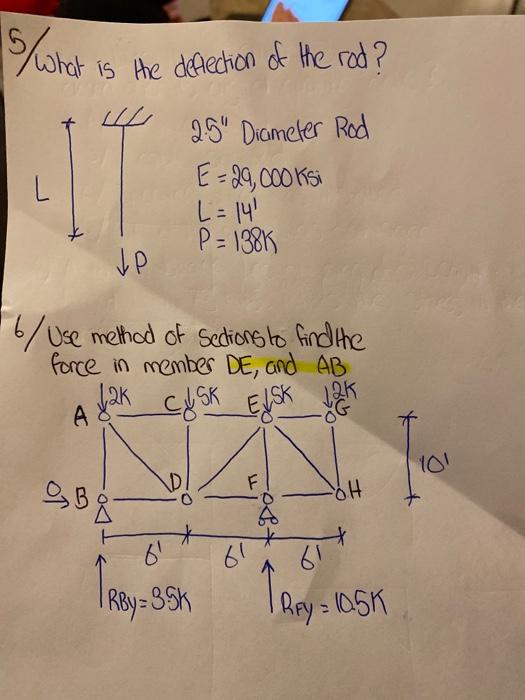 5/ What is the deflection of the rod?
2.5" Diameter Rod
E = 29,000 Ksi
L
L = 14'
P = 138K
↓P
6/ Use method of Sections to find the
force in member DE, and AB
↓2K ↓5K ↓5K ↓2K
A C E G
10'
0→ B D F H
6' 6' 6'
RBy = 3.5K RFy = 10.5K